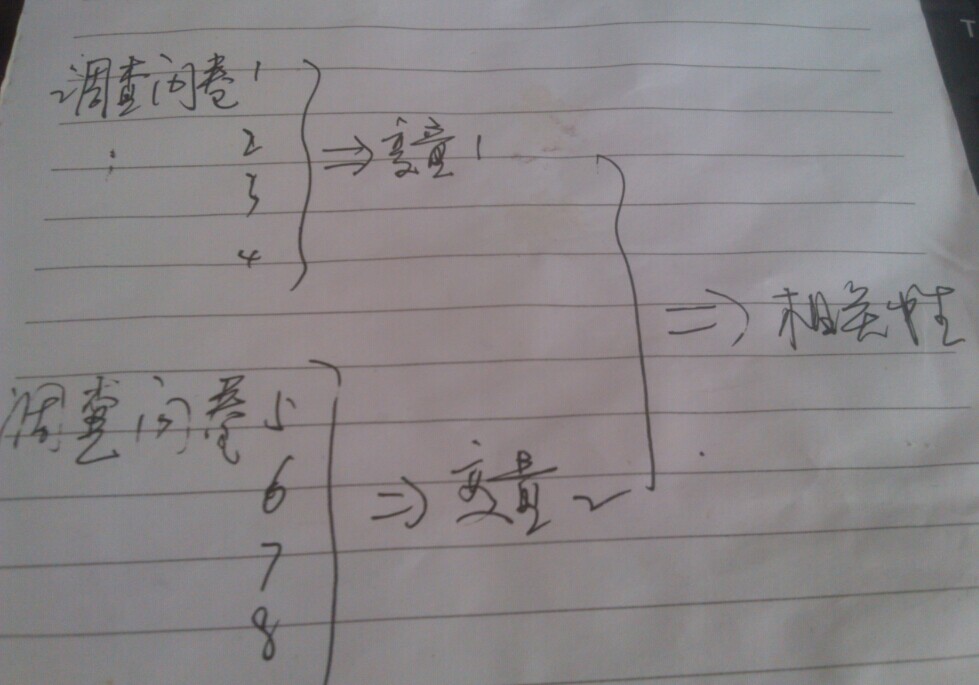 调查问卷1
2 ⇒ 变量1
3
4
⇒ 相关性
调查问卷5
6 ⇒ 变量2
7
8
T